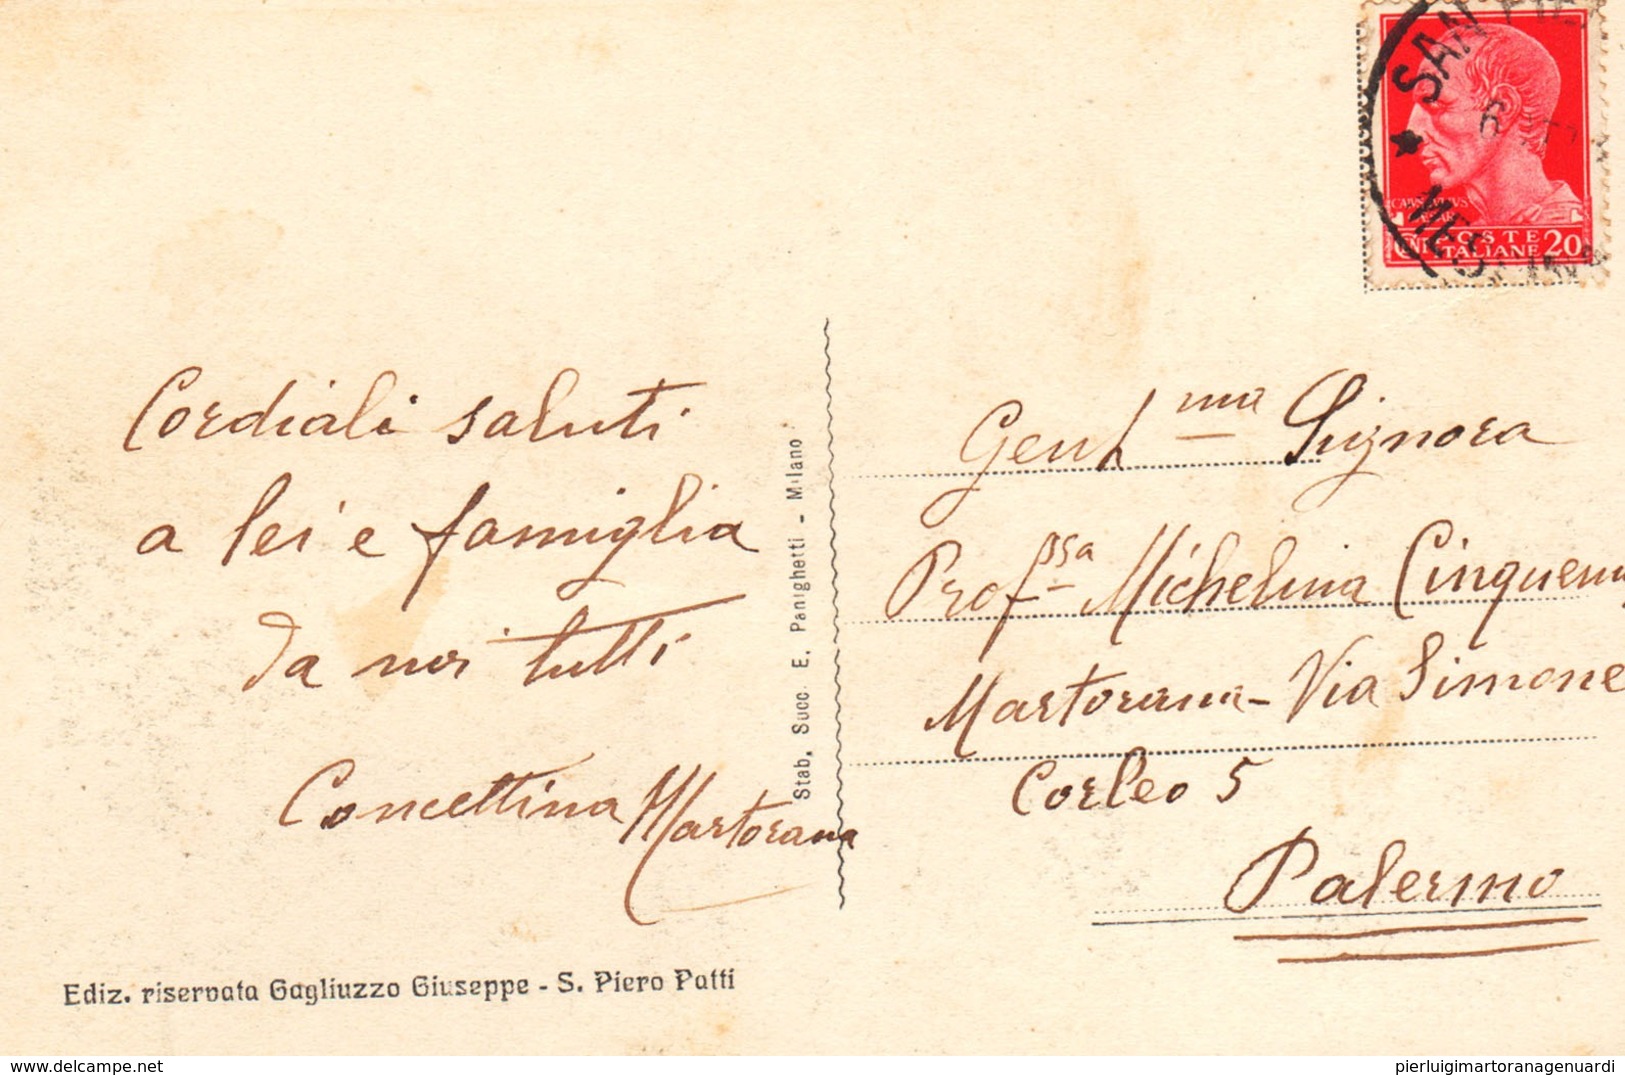 SAN PIE
6
MESSINA
CAIVS IVLIVS
CAESAR
POSTE
ITALIANE
CENT 20
Cordiali saluti
a lei e famiglia
da noi tutti
Concettina Martorana
Stab. Succ. E. Panighetti - Milano
Gent.ma Signora
Prof.ssa Michelina Cinquem
Martorana - Via Simone
Corleo 5
Palermo
Ediz. riservata Gagliuzzo Giuseppe - S. Piero Patti
delcampe.net
pierluigimartoranagenuardi